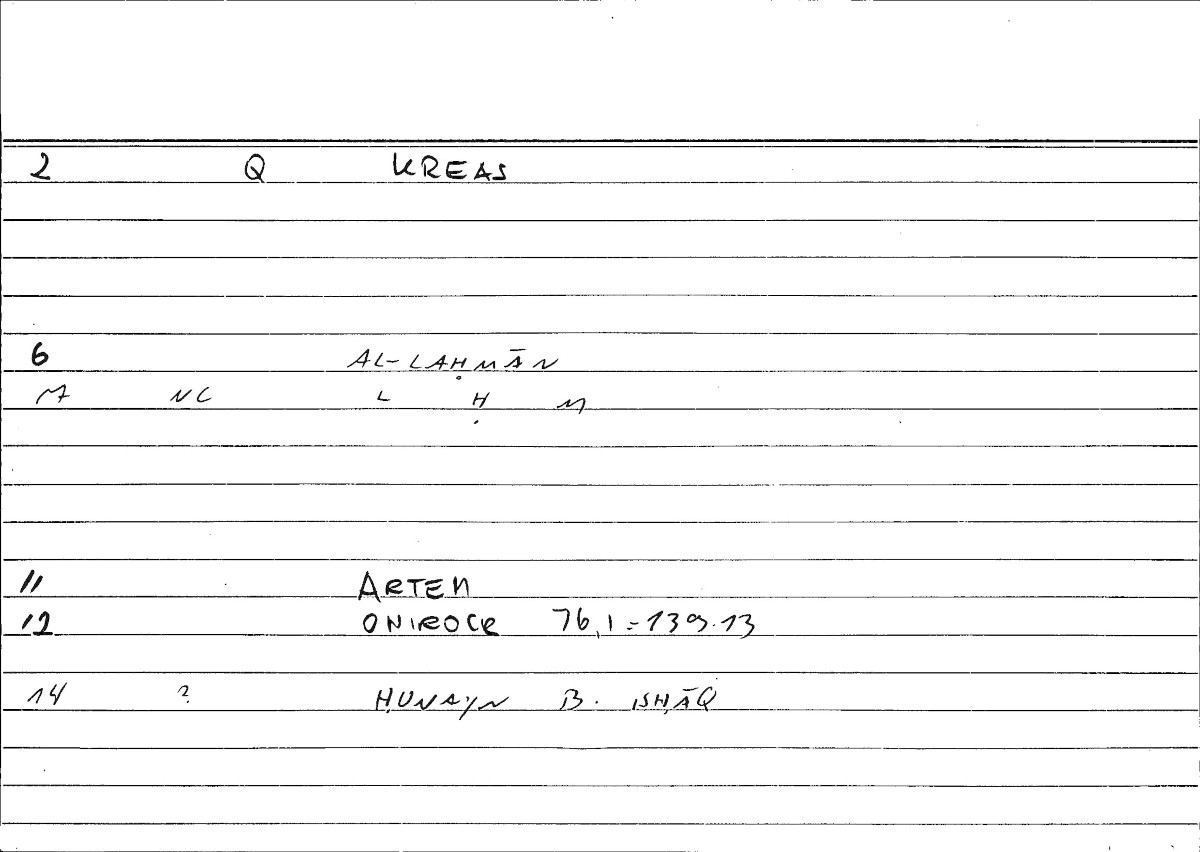 2 Q KREAS
6 AL-LAḤMĀN
M NC L Ḥ M
11 ARTEM
12 ONIROCR 76,1=139.13
14 ? ḤUNAYN B. ISḤĀQ